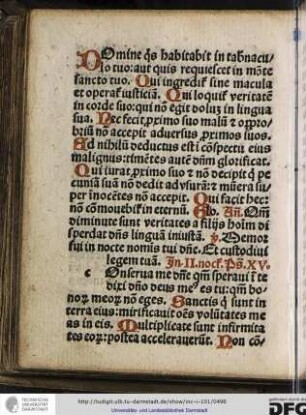 Domine q̄s habitabit in tabnacu⸗
lo tuo: aut quis requiescet in mōte
sancto tuo. Qui ingredit̄ sine macula
et operat̄ iusticiā. Qui loquit̄ veritatē
in corde suo: qui nō egit dolū in lingua
sua. Nec fecit ꝓximo suo malū ⁊ oppro⸗
briū nō accepit aduersus ꝓximos suos.
Ad nihilū deductus est ī cōspectu eius
malignus: timētes autē dn̄m glorificat.
Qui iurat ꝓximo suo ⁊ nō decipit q̄ pe
cuniā suā nō dedit ad vsurā: ⁊ mūera su⸗
per īnocētes nō accepit. Qui facit hec:
nō cōmouebit̄ in eternū. Añ. Qm̄
diminute sunt veritates a filijs hoīm di
sperdat dn̄s linguā iniustā. v. Memor
fui in nocte nomīs tui dn̄e. Et custodiui
legem tuā. In .II. noct. Ps. XV.
Onserua me dn̄e qm̄ speraui ī te
dixi dn̄o deus me⁹ es tu: qm̄ bo⸗
noꝝ meoꝝ nō eges. Sanctis q̄ sunt in
terra eius: mirificauit oēs volūtates me
as in eis. Multiplicate sunt infirmita
tes eoꝝ: postea accelerauerūt. Non cō⸗
TECHNISCHE
UNIVERSITÄT
DARMSTADT
http://tudigit.ulb.tu-darmstadt.de/show/inc-i-101/0490
Universitäts- und Landesbibliothek Darmstadt
gefördert durch
DFG